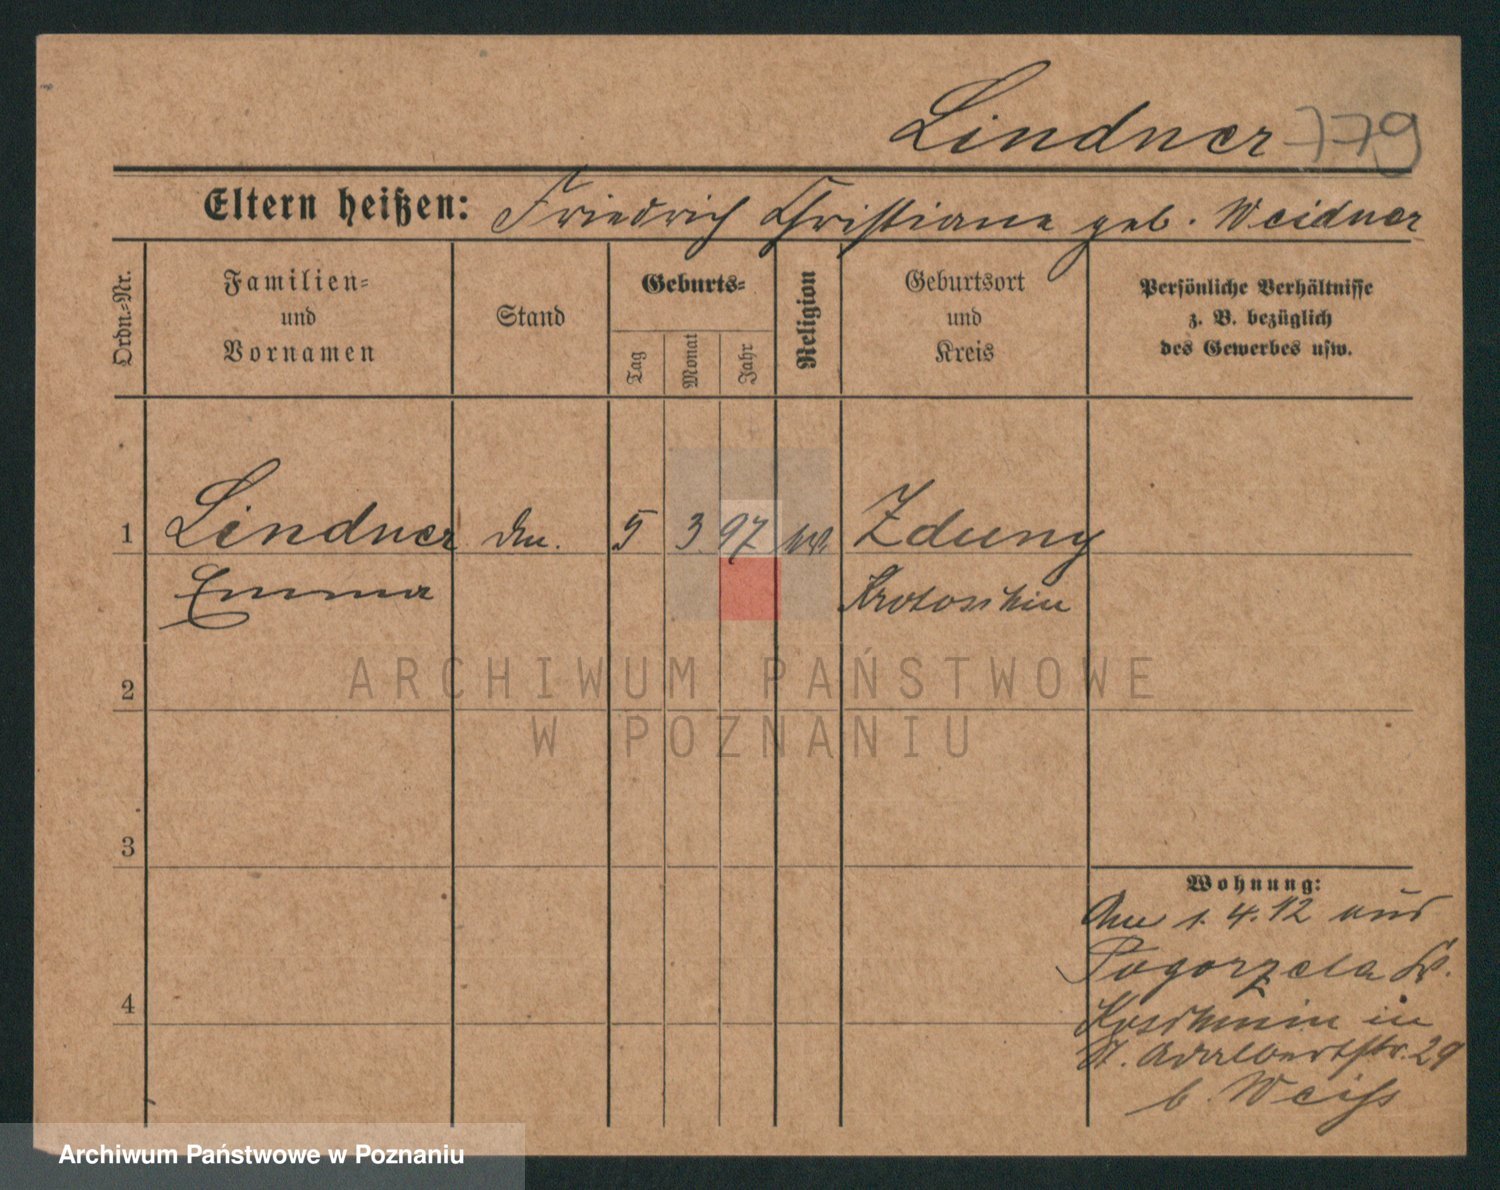 Lindner 779
Eltern heißen: Friedrich Christiane geb. Weidner
Ordn.=Nr.
Familien=
und
Vornamen
Stand
Geburts=
Tag
Monat
Jahr
Religion
Geburtsort
und
Kreis
Persönliche Verhältnisse
z. B. bezüglich
des Gewerbes usw.
1 Lindner 5 3. 97 Zduny
Emma Krotoschin
2
3
4
Wohnung:
1. 4. 12 aus
Pogorzela Kr.
Koschmin in
St. Adalbertstr. 29
b. Weiss
ARCHIWUM PAŃSTWOWE
W POZNANIU
Archiwum Państwowe w Poznaniu